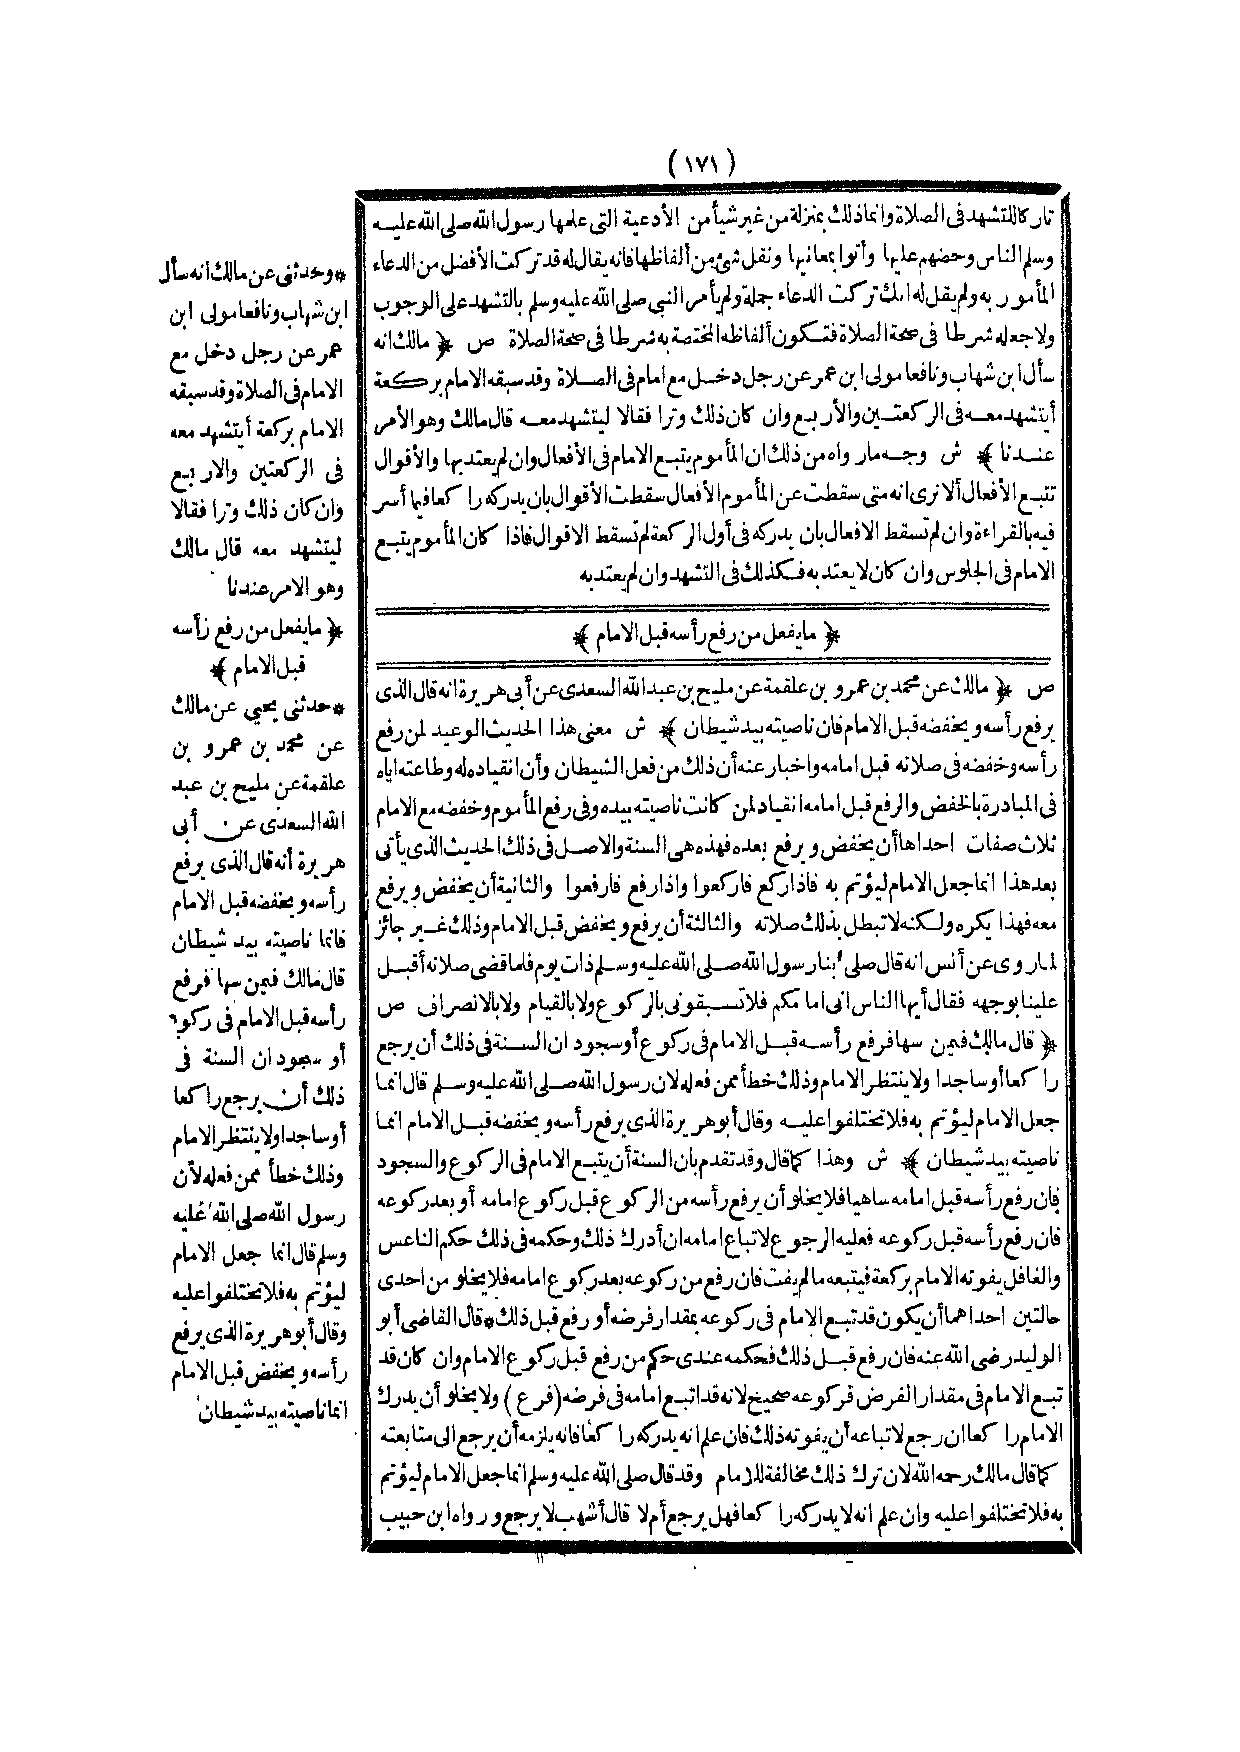 (١٧١)
تاركا للتشهد فى الصلاة وانما ذلك بمنزلة من غير شيأ من الأدعية التى علمها رسول الله صلى الله عليه
وسلم الناس وحضهم عليها وأتوا بمعانيها ونقل شئ من ألفاظها فانه يقال له قد تركت الأفضل من الدعاء
المأمور به ولم يقل له انك تركت الدعاء جملة ولم يأمر النبى صلى الله عليه وسلم بالتشهد على الوجوب
ولا جعله شرطا فى صحة الصلاة فتكون ألفاظه المختصة به شرطا فى صحة الصلاة ص ﴿ مالك انه
سأل ابن شهاب ونافعا مولى ابن عمر عن رجل دخل مع امام فى الصلاة وقد سبقه الامام بركعة
أيتشهد معه فى الركعتين والأربع وان كان ذلك وترا فقالا ليتشهد معه قال مالك وهو الأمر
عندنا ﴾ ش وجه ما رواه من ذلك ان المأموم يتبع الامام فى الأفعال وان لم يعتد بها والأقوال
تتبع الأفعال ألا ترى انه متى سقطت عن المأموم الأفعال سقطت الأقوال بان يدركه راكعا فيما أسر
فيه بالقراءة وان لم تسقط الافعال بان يدركه فى أول الركعة لم تسقط الاقوال فاذا كان المأموم يتبع
الامام فى الجلوس وان كان لا يعتد به فكذلك فى التشهد وان لم يعتد به
﴿ ما يفعل من رفع رأسه قبل الامام ﴾
ص ﴿ مالك عن محمد بن عمرو بن علقمة عن مليح بن عبد الله السعدى عن أبى هريرة انه قال الذى
يرفع رأسه ويخفضه قبل الامام فان ناصيته بيد شيطان ﴾ ش معنى هذا الحديث الوعيد لمن رفع
رأسه وخفضه فى صلاته قبل امامه واخبار عنه أن ذلك من فعل الشيطان وأن انقياده له وطاعته اياه
فى المبادرة بالخفض والرفع قبل امامه انقياد لمن كانت ناصيته بيده وفى رفع المأموم وخفضه مع الامام
ثلاث صفات احداها أن يخفض ويرفع بعده فهذه هى السنة والاصل فى ذلك الحديث الذى يأتى
بعد هذا انما جعل الامام ليؤتم به فاذا ركع فاركعوا واذا رفع فارفعوا والثانية أن يخفض ويرفع
معه فهذا يكره ولكنه لا تبطل بذلك صلاته والثالثة أن يرفع ويخفض قبل الامام وذلك غير جائز
لما روى عن أنس انه قال صلى بنا رسول الله صلى الله عليه وسلم ذات يوم فلما قضى صلاته أقبل
علينا بوجهه فقال أيها الناس انى امامكم فلا تسبقونى بالركوع ولا بالقيام ولا بالانصراف ص
﴿ قال مالك فيمن سها فرفع رأسه قبل الامام فى ركوع أو سجود ان السنة فى ذلك أن يرجع
راكعا أو ساجدا ولا ينتظر الامام وذلك خطأ ممن فعله لان رسول الله صلى الله عليه وسلم قال انما
جعل الامام ليؤتم به فلا تختلفوا عليه وقال أبو هريرة الذى يرفع رأسه ويخفضه قبل الامام انما
ناصيته بيد شيطان ﴾ ش وهذا كما قال وقد تقدم بان السنة أن يتبع الامام فى الركوع والسجود
فان رفع رأسه قبل امامه ساهيا فلا يخلو أن يرفع رأسه من الركوع قبل ركوع امامه أو بعد ركوعه
فان رفع رأسه قبل ركوعه فعليه الرجوع لاتباع امامه ان أدرك ذلك وحكمه فى ذلك حكم الناعس
والغافل يفوته الامام بركعة فيتبعه ما لم يفت فان رفع من ركوعه بعد ركوع امامه فلا يخلو من احدى
حالتين احداهما أن يكون قد تبع الامام فى ركوعه بمقدار فرضه أو رفع قبل ذلك * قال القاضى أبو
الوليد رضى الله عنه فان رفع قبل ذلك فحكمه عندى حكم من رفع قبل ركوع الامام وان كان قد
تبع الامام فى مقدار الفرض فركوعه صحيح لانه قد اتبع امامه فى فرضه (فرع) ولا يخلو أن يدرك
الامام راكعا ان رجع لاتباعه أن يفوته ذلك فان علم انه يدركه راكعا فانه يلزمه أن يرجع الى متابعته
كما قال مالك رحمه الله لان ترك ذلك مخالفة للامام وقد قال صلى الله عليه وسلم انما جعل الامام ليؤتم
به فلا تختلفوا عليه وان علم انه لا يدركه راكعا فهل يرجع أم لا قال أشهب لا يرجع ورواه ابن حبيب
* وحدثنى عن مالك انه سأل
ابن شهاب ونافعا مولى ابن
عمر عن رجل دخل مع
الامام فى الصلاة وقد سبقه
الامام بركعة أيتشهد معه
فى الركعتين والاربع
وان كان ذلك وترا فقالا
ليتشهد معه قال مالك
وهو الامر عندنا
﴿ ما يفعل من رفع رأسه
قبل الامام ﴾
* حدثنى يحيى عن مالك
عن محمد بن عمرو بن
علقمة عن مليح بن عبد
الله السعدى عن أبى
هريرة أنه قال الذى يرفع
رأسه ويخفضه قبل الامام
فانما ناصيته بيد شيطان
قال مالك فيمن سها فرفع
رأسه قبل الامام فى ركوع
أو سجود ان السنة فى
ذلك أن يرجع راكعا
أو ساجدا ولا ينتظر الامام
وذلك خطأ ممن فعله لأن
رسول الله صلى الله عليه
وسلم قال انما جعل الامام
ليؤتم به فلا تختلفوا عليه
وقال أبو هريرة الذى يرفع
رأسه ويخفض قبل الامام
انما ناصيته بيد شيطان